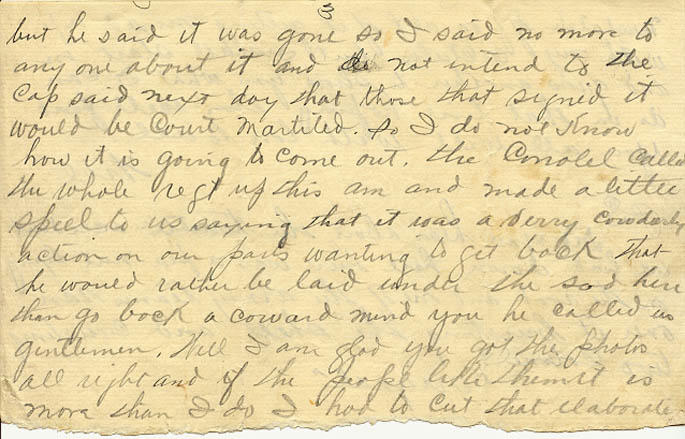 3
but he said it was gone so I said no more to
any one about it and do not intend to the
Cap said next day that those that signed it
would be Court Martiled. so I do not Know
how it is going to come out. the Conolel Called
the whole regt up this am and made a little
speel to us saying that it was a verry Cowderly
action on our parts wanting to get back that
he would rather be laid under the sod here
than go back a coward mind you he called us
gentlemen. Well I am glad you got the photos
all right and if the people like them it is
more than I do I had to cut that elaborate